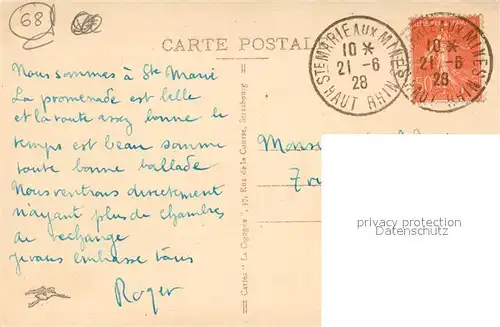 68
CARTE POSTAL
STE MARIE AUX MINES
10 *
21 - 6
28
HAUT RHIN
STE MARIE AUX MINES
10 *
21 - 6
28
HAUT RHIN
50
Nous sommes à Ste Marie
La promenade est belle
et la route assez bonne le
temps est beau somme
toute bonne ballade
Nous rentrons directement
n'ayant plus de chambres
de rechange
je vous embrasse tous
Roger
Cartes "La Cigogne", 37, Rue de la Course, Strasbourg
Mons
privacy protection